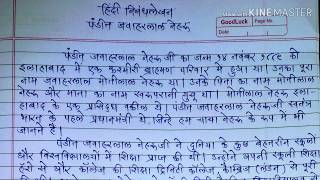 KINEMASTER
हिंदी निबंधलेखन
पंडीत जवाहरलाल नेहरू
GoodLuck
Page No.
Date
पंडीत जवाहरलाल नेहरू जी का जन्म १४ नवंबर १८८९ को
इलाहाबाद में एक कश्मीरी ब्राह्मण परिवार में हुआ था। उनका पूरा
नाम जवाहरलाल मोतीलाल नेहरू था। उनके पिता का नाम मोतीलाल
नेहरू और माता का नाम स्वरूपरानी थुसू था। मोतीलाल नेहरू इला-
हाबाद के एक प्रसिद्ध वकील थे। पंडीत जवाहरलाल नेहरूजी स्वतंत्र
भारत के पहले प्रधानमंत्री थे। जिन्हें हम चाचा नेहरू के रूप में भी
जानते है।
पंडीत जवाहरलाल नेहरू जी ने दुनिया के कुछ बेहतरीन स्कूलों
और विश्वविद्यालयों में शिक्षा प्राप्त की थी। उन्होंने अपनी स्कूली शिक्षा
हैरो से और कॉलेज की शिक्षा ट्रिनिटी कॉलेज, केम्ब्रिज (लंडन) से पूरी